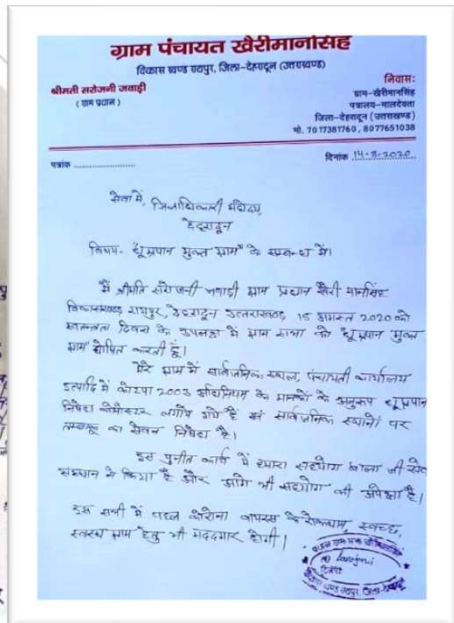 ग्राम पंचायत खैरीमानसिंह
विकास खण्ड रायपुर, जिला-देहरादून (उत्तराखण्ड)
श्रीमती सरोजनी जवाड़ी
( ग्राम प्रधान )
निवास:
ग्राम-खैरीमानसिंह
पत्रालय-मालदेवता
जिला-देहरादून (उत्तराखण्ड)
मो. 7017381760, 8077651038
पत्रांक ....................
दिनांक 14-8-2020
सेवा में, जिलाधिकारी महोदय,
देहरादून
विषय- "धूम्रपान मुक्त ग्राम" के सम्बन्ध में।
मैं श्रीमति सरोजनी जवाड़ी ग्राम प्रधान खैरी मानसिंह
विकासखण्ड रायपुर, देहरादून उत्तराखण्ड 15 अगस्त 2020 को
स्वतन्त्रता दिवस के उपलक्ष में ग्राम सभा को "धूम्रपान मुक्त
ग्राम" घोषित करती हूँ।
मेरे ग्राम में सार्वजनिक स्थल, पंचायती कार्यालय
इत्यादि में कोटपा 2003 अधिनियम के मानकों के अनुरूप धूम्रपान
निषेध लगाये गये हैं एवं सार्वजनिक स्थानों पर
तम्बाकू का सेवन निषेध है।
इस पुनीत कार्य में हमारा सहयोग
संस्थान ने किया है और आगे भी सहयोग की अपेक्षा है।
इस में पहल कोरोना वायरस के रोकथाम, स्वच्छ,
स्वस्थ ग्राम हेतु भी मददगार होगी।